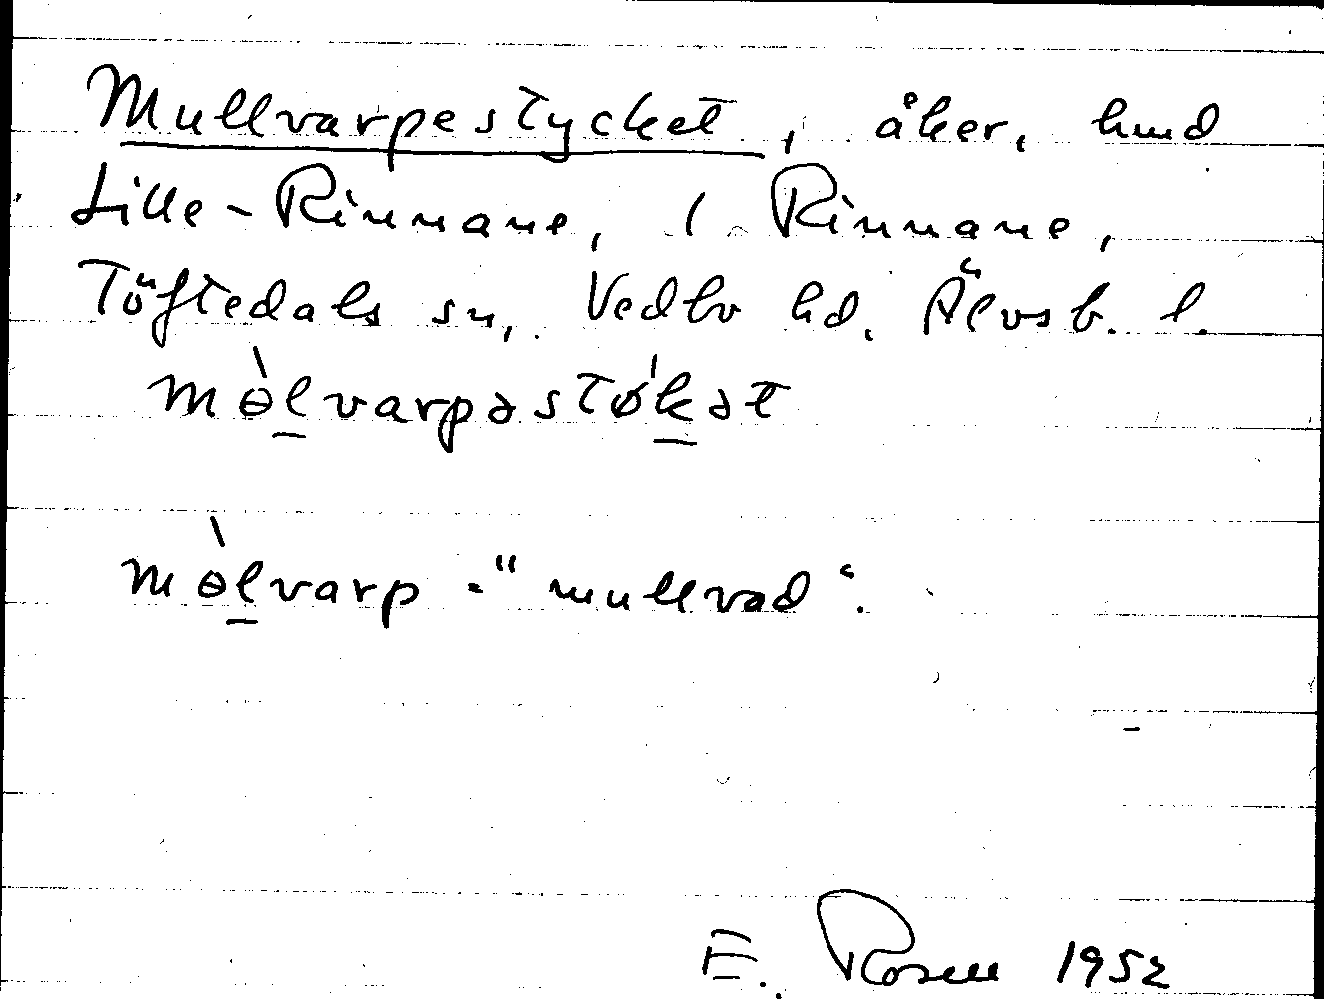 Mullvarpestycket, åker, hmd
Lille-Rinnane, 1 Rinnane,
Töftedals sn, Vedbo hd. Älvsb. l.
mɵ̀lvarpəstøkət
mɵ̀lvarp = "mullvad".
E. Rosell 1952